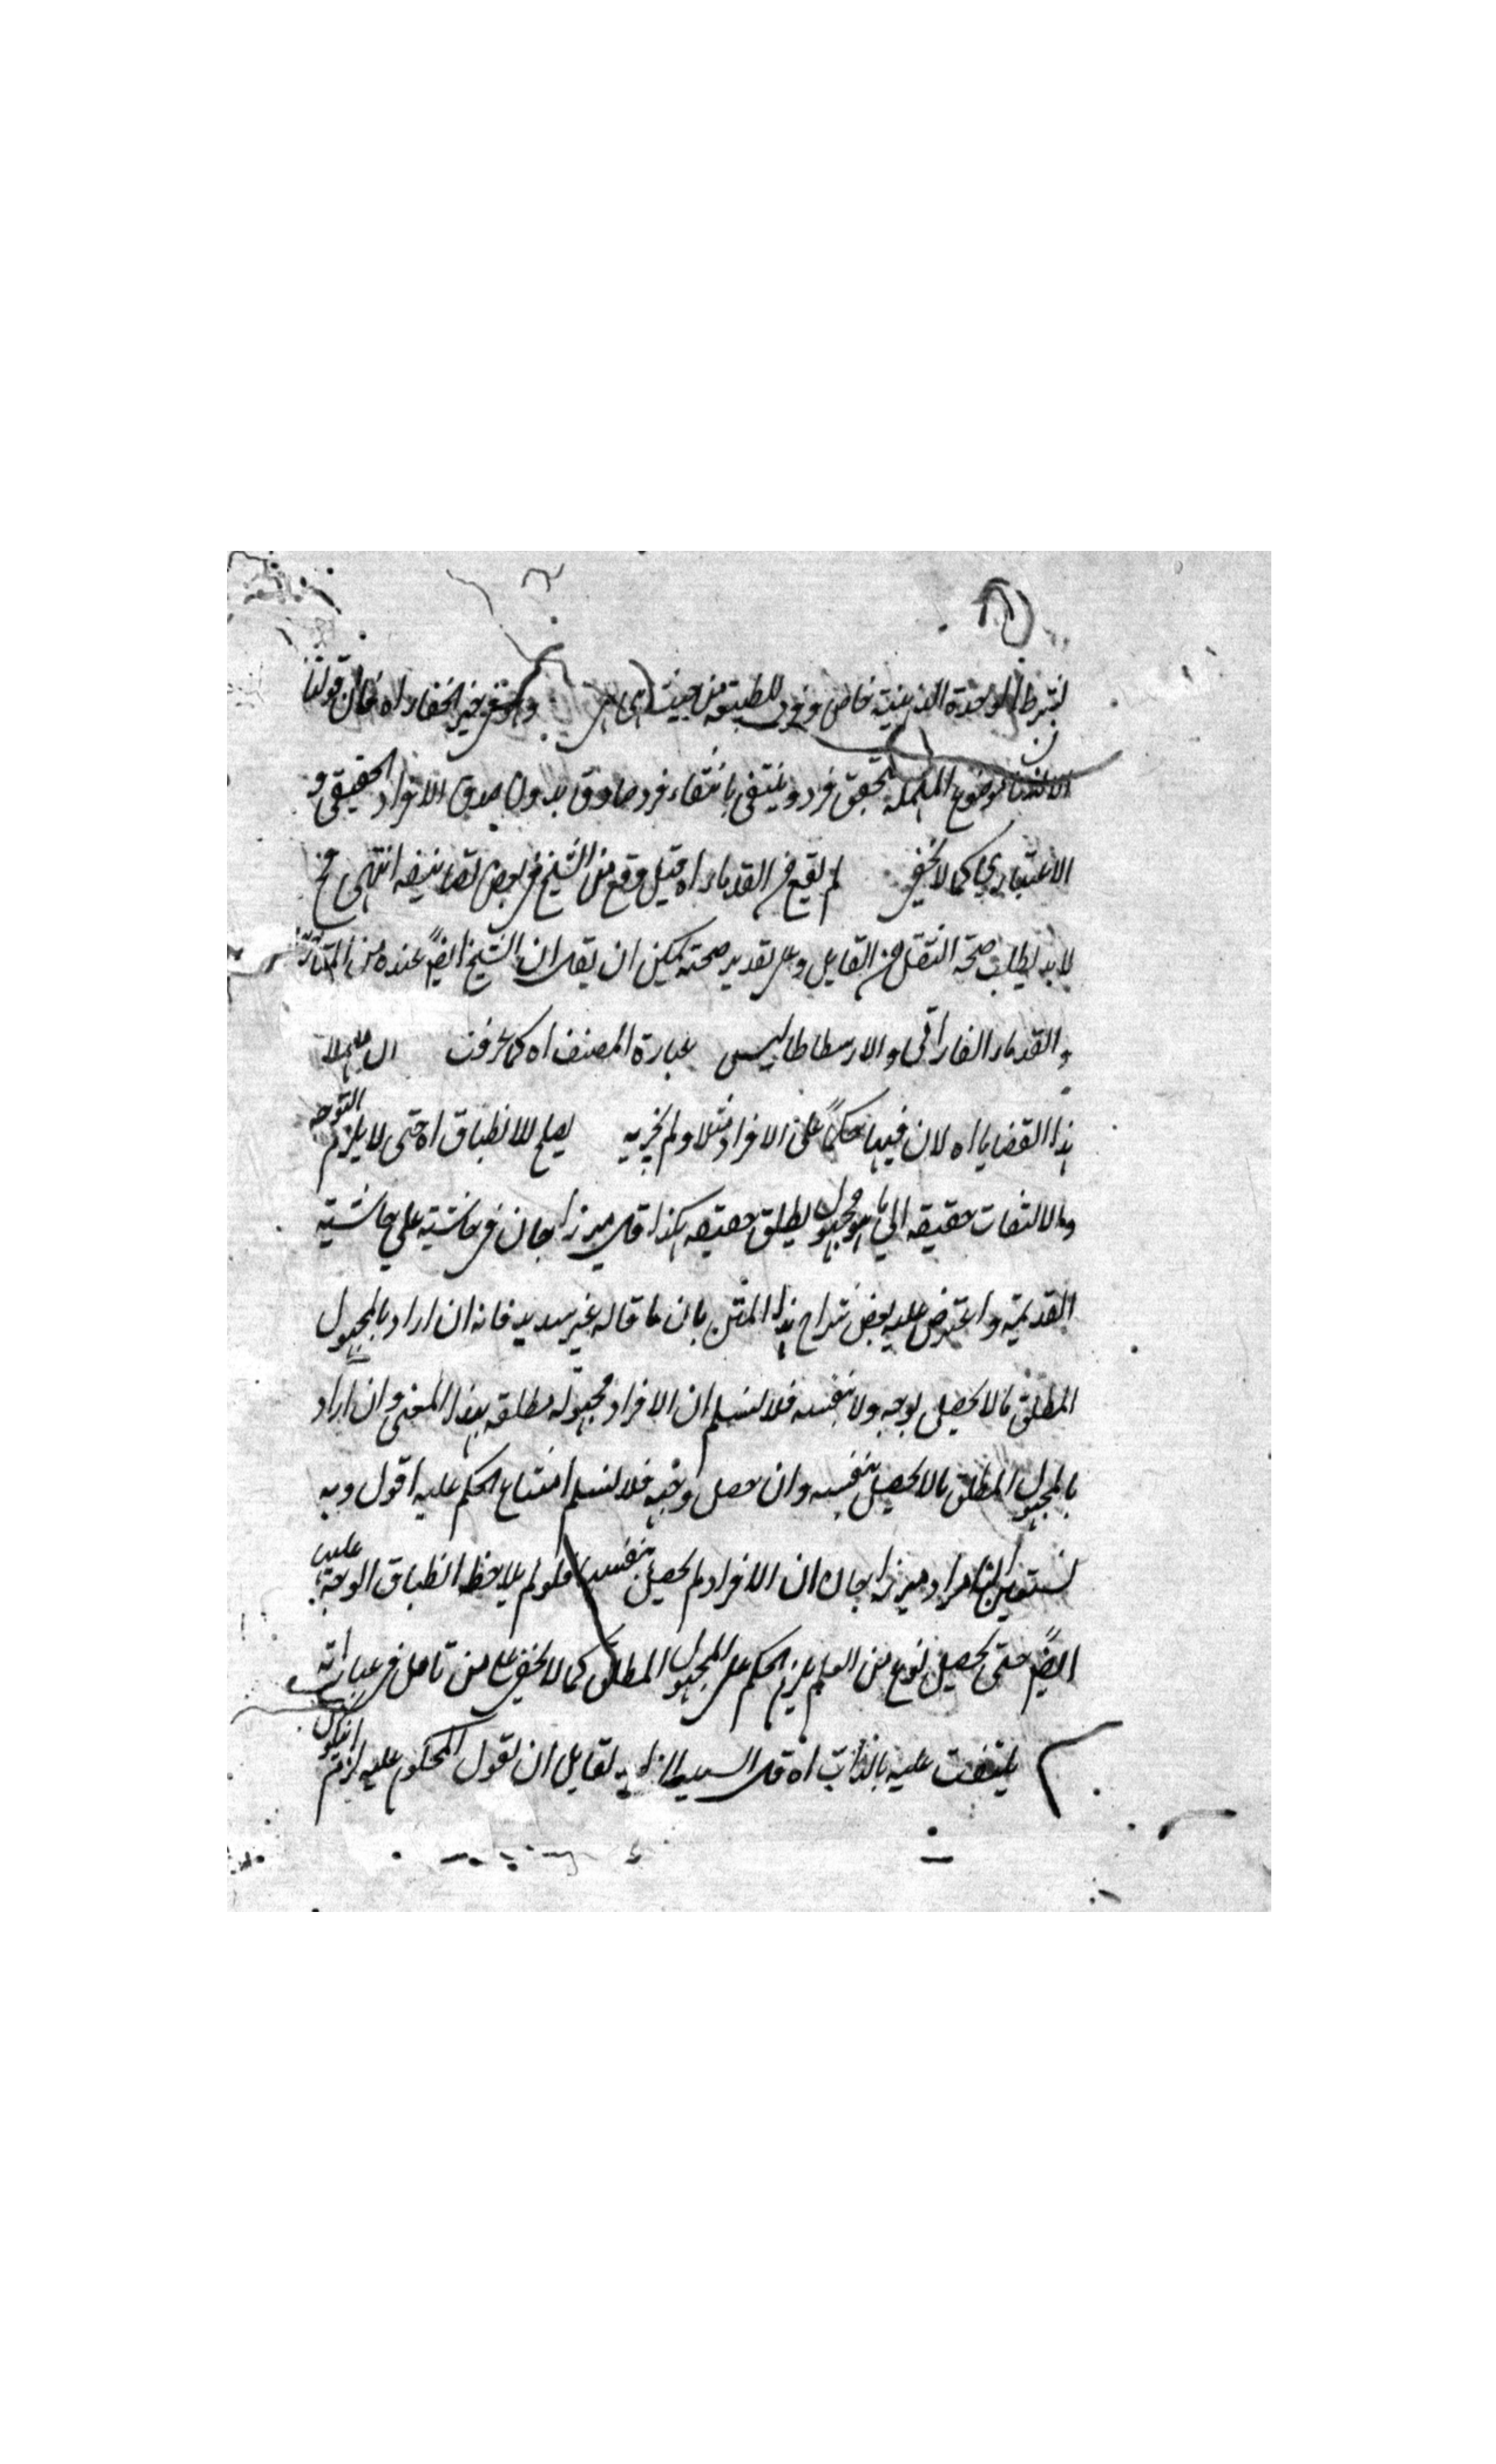 بشرط الوحدة الذهنية خاص وفرد للطبيعة من حيث هي هي وهو في خير الخفاء اه فان قولنا
الانسان موضوع المهملة تحقق فرد وينتفي بانتفاء فرد صادق بدون صدق الافراد الحقيقي و
الاعتباري كما لا يخفى لم يقع من القدماء اه قيل وقع من الشيخ في بعض تصانيفه انتهى فح
لا بد يطلب صحة النقل من القايل وعلى تقدير صحته يمكن ان يقال ان الشيخ ايضً عنده من المتأخرين
والقدماء الفارابي والارسطاطاليس عبارة المصنف اه كما عرفت ان مهملا
هذا القضايا اه لان فيها حكمًا على الافراد مثلا ولم يجز به يصلح للانطباق اه حتى لا يلزم التوجه
والالتفات حقيقه الي ما هو مجهول يطلق حقيقه هكذا قال ميرزا جان في حاشيته علي حاشية
القديمة واعترض عليه بعض شراح هذا المتن بان ما قاله غير سديد فانه ان اراد بالمجهول
المطلق ما لا يحصل بوجه ولا بنفسه فلا نسلم ان الافراد مجهولة مطلقه بهذا المعنى وان اراد
بالمجهول المطلق ما لا يحصل بنفسه وان حصل وجهه فلا نسلم امتناع الحكم عليه اقول وبه
نستعين ان مراد ميرزا جان ان الافراد لم يحصل بنفسه فلو لم يلاحظ انطباق الوجه عليه
ايضً حتى يحصل نوع من العلم يلزم الحكم على المجهول المطلق كما لا يخفى على من تامل في عباراته
يلتفت عليه بالذات اه قال السيد الزاهد لقايل ان يقول المحكوم عليه لزم ان يكون